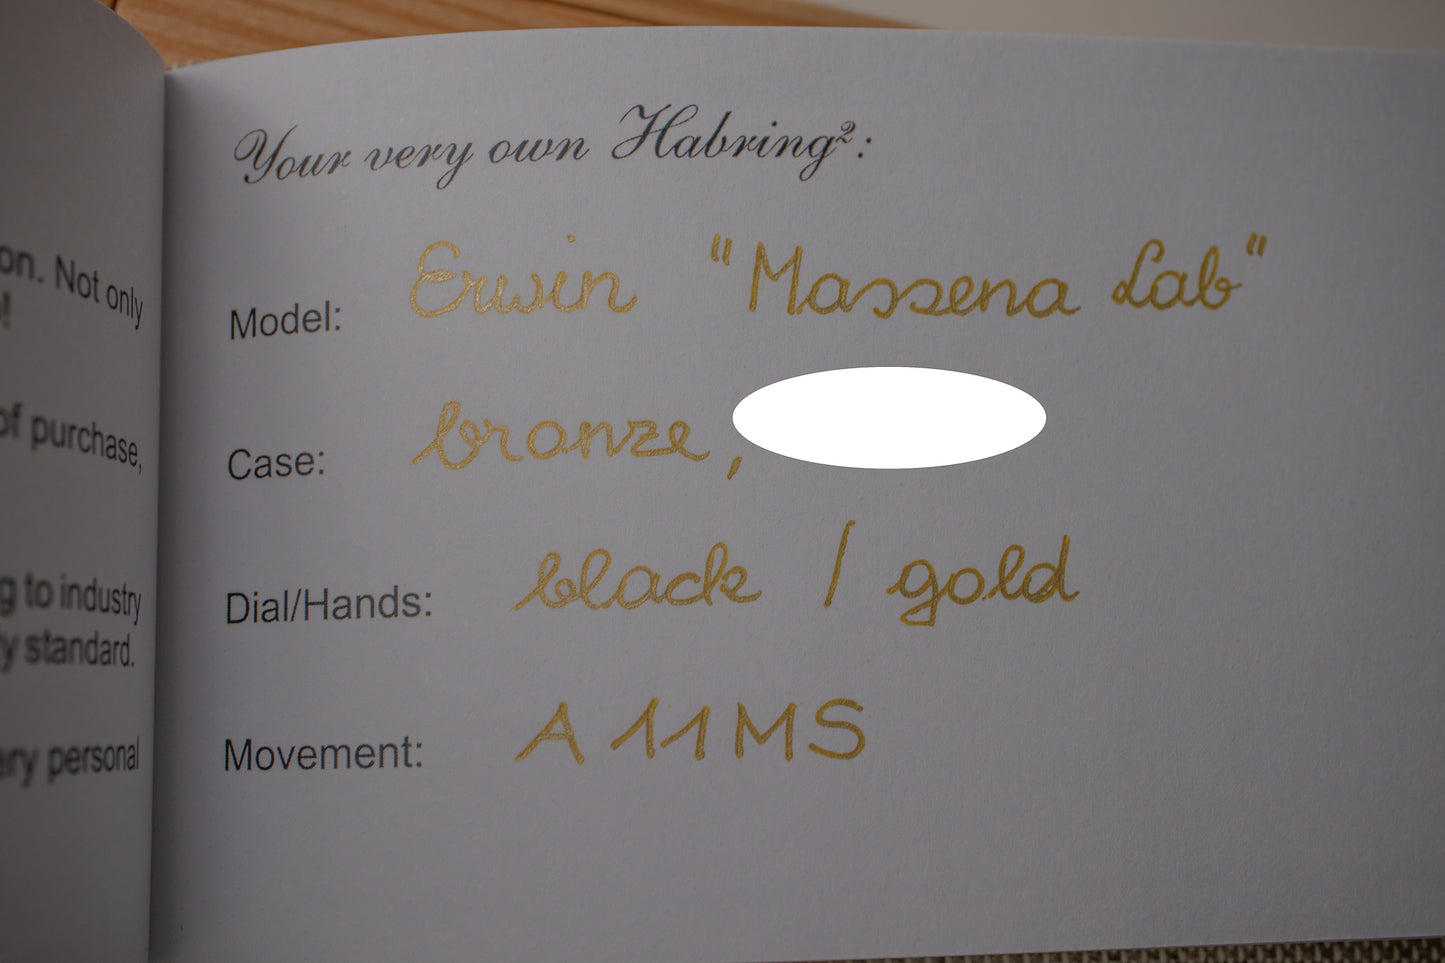 on. Not only
!
of purchase,
g to industry
y standard.
ery personal
Your very own Habring²:
Model: Erwin "Massena Lab"
Case: bronze,
Dial/Hands: black / gold
Movement: A11MS